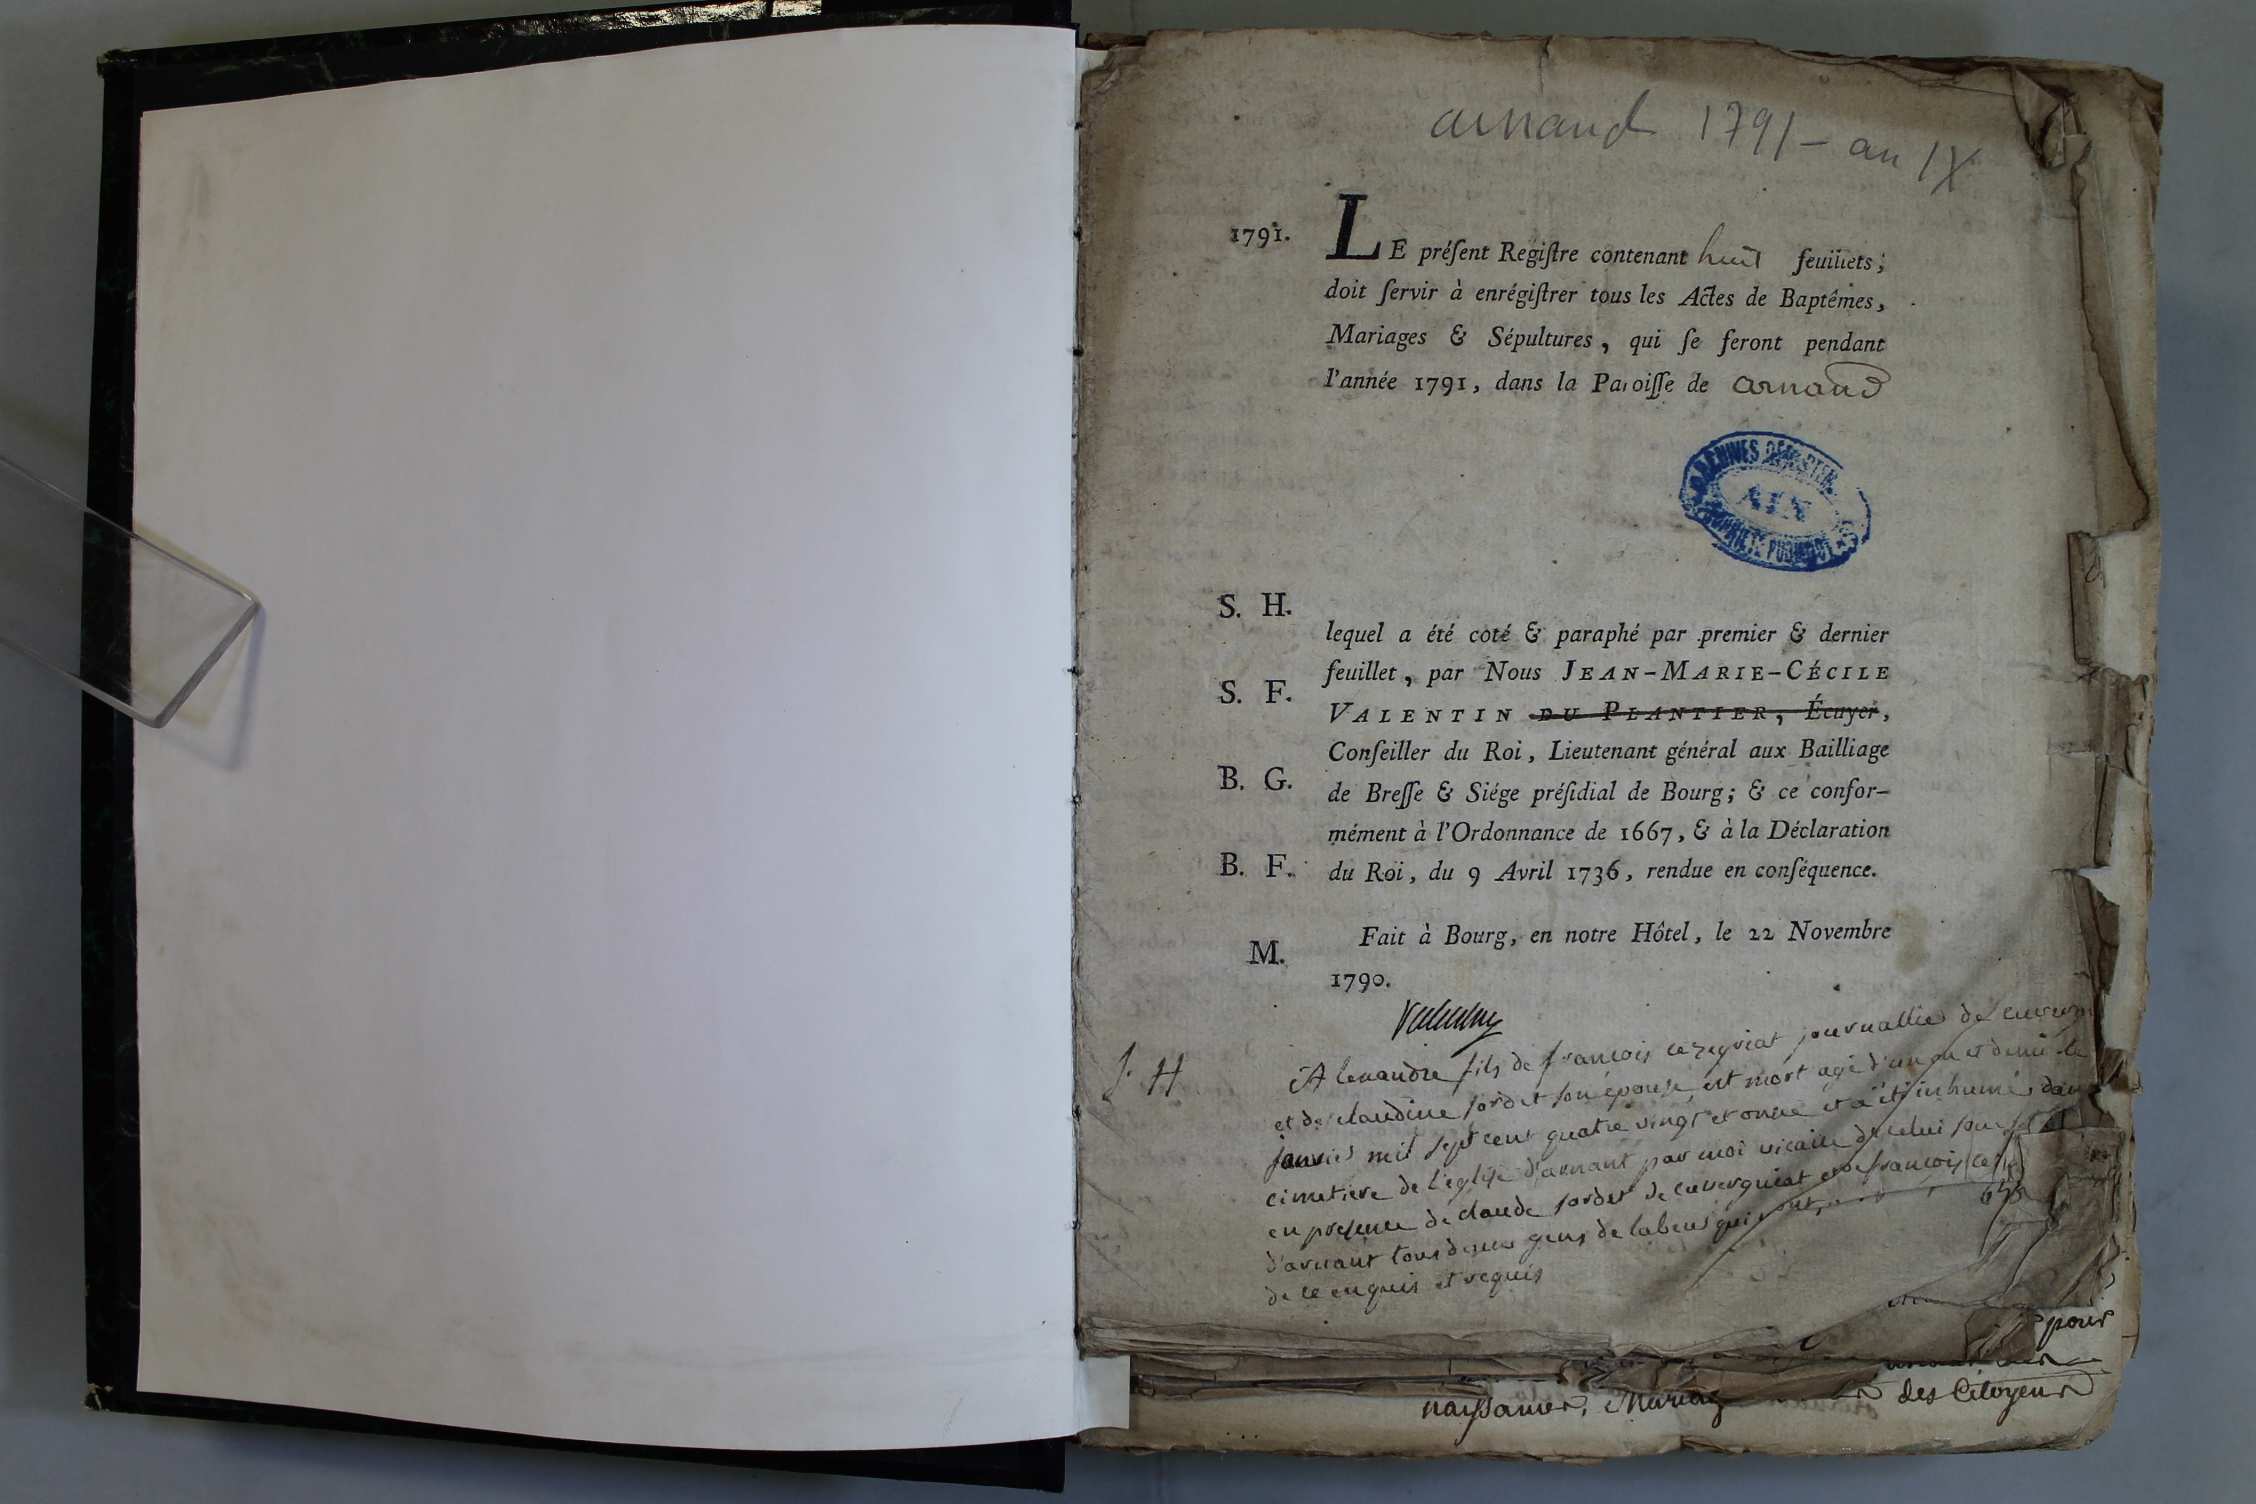 arnand 1791 - an IX
1791.
LE préſent Regiſtre contenant huit feuillets;
doit ſervir à enrégiſtrer tous les Actes de Baptêmes,
Mariages & Sépultures, qui ſe feront pendant
l'année 1791, dans la Paroiſſe de arnand
ARCHIVES DÉPARTEM.
AIN
PROPRIÉTÉ PUBLIQUE
S. H.
lequel a été coté & paraphé par premier & dernier
feuillet, par Nous JEAN-MARIE-CÉCILE
S. F.
VALENTIN DU PLANTIER, Écuyer,
Conſeiller du Roi, Lieutenant général aux Bailliage
B. G.
de Breſſe & Siége préſidial de Bourg; & ce confor-
mément à l'Ordonnance de 1667, & à la Déclaration
B. F.
du Roi, du 9 Avril 1736, rendue en conſéquence.
Fait à Bourg, en notre Hôtel, le 22 Novembre
M.
1790.
Valentin
S. H
Alexandre fils de francois journallier de
et de claudine sordet son épouse, est mort agé d'un an et demi le
janvier mil sept cent quatre vingt et onze et a été inhumé dans
cimetiere de l'eglise d'arnant par moi vicaire de celui
en presence de claude sordet de cuvergniat et de françois
d'arnant tous deux gens de labeur qui
de ce enquis et requis
pour
naissances, Mariag des Citoyens